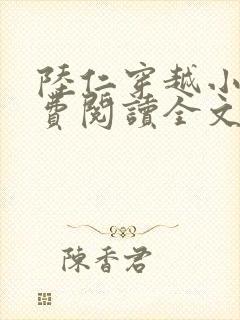 陸仁穿越小
費閱讀全文
陳香君